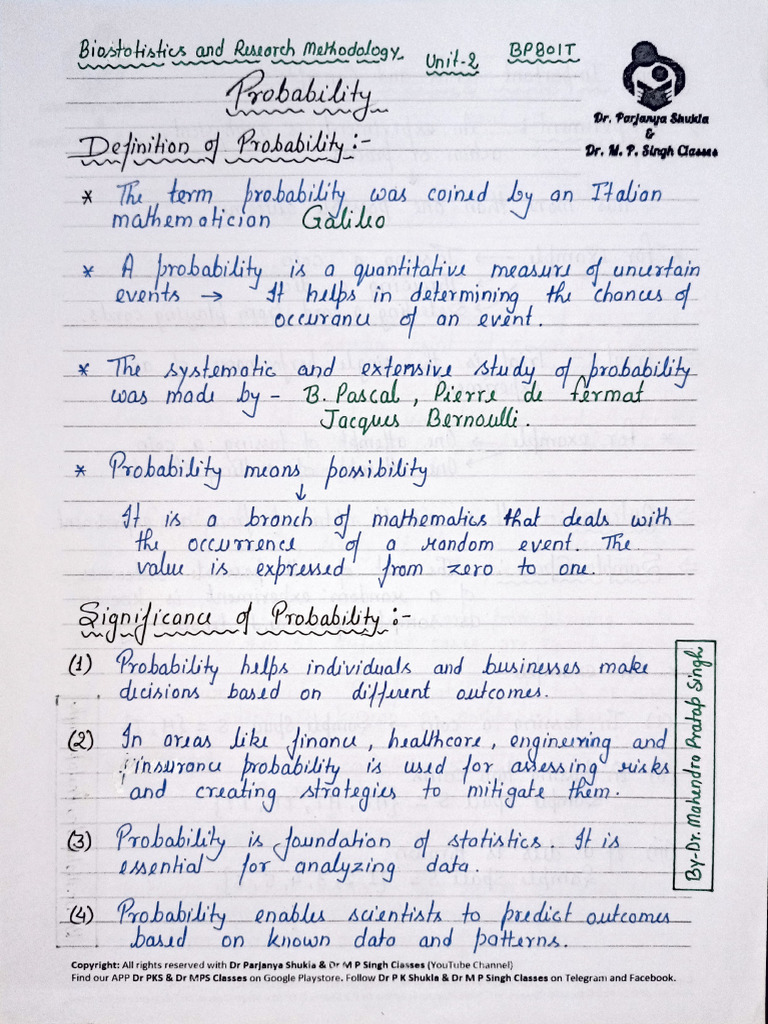 Biostatistics and Research Methodology Unit-2 BP801T
Dr. Parjanya Shukla
&
Dr. M. P. Singh Classes
Probability
Definition of Probability :-
* The term probability was coined by an Italian
mathematician Galileo
* A probability is a quantitative measure of uncertain
events → It helps in determining the chances of
occurance of an event.
* The systematic and extensive study of probability
was made by - B. Pascal, Pierre de fermat
Jacques Bernoulli.
* Probability means possibility
↓
It is a branch of mathematics that deals with
the occurrence of a random event. The
value is expressed from zero to one.
Significance of Probability :-
(1) Probability helps individuals and businesses make
decisions based on different outcomes.
(2) In areas like finance, healthcare, engineering and
insurance probability is used for assessing risks
and creating strategies to mitigate them.
(3) Probability is foundation of statistics. It is
essential for analyzing data.
(4) Probability enables scientists to predict outcomes
based on known data and patterns.
By-Dr. Mahendra Pratap Singh
Copyright: All rights reserved with Dr Parjanya Shukla & Dr M P Singh Classes (YouTube Channel)
Find our APP Dr PKS & Dr MPS Classes on Google Playstore. Follow Dr P K Shukla & Dr M P Singh Classes on Telegram and Facebook.